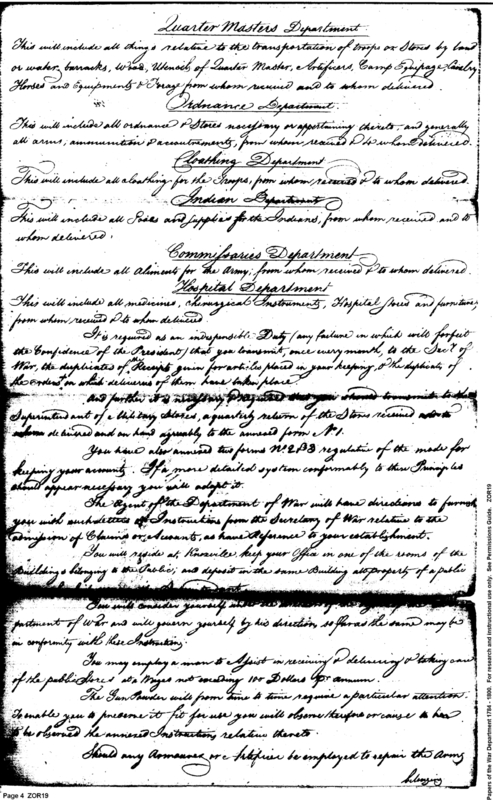 Quarter Masters Department
This will include all things relative to the transportation of troops or Stores by land
or water, barracks, Wood, Utensils of Quarter Master, Artificers, Camp Equipage, Cavalry
Horses and Equipments & Forage from whom received and to whom delivered
Ordnance Department
This will include all ordnance & Stores necessary or appertaining thereto, and generally
all arms, ammunition & accoutrements, from whom received & to whom delivered.
Cloathing Department
This will include all cloathing for the Troops, from whom received & to whom delivered.
Indian Department
This will include all Goods and supplies for the Indians, from whom received and to
whom delivered.
Commissaries Department
This will include all Aliments for the Army, from whom received & to whom delivered.
Hospital Department
This will include all medicines, chirurgical Instruments, Hospital stores and furniture,
from whom received & to whom delivered.
It is required as an indispensible Duty (any failure in which will forfeit
the Confidence of the President) that you transmit, once every month, to the Secy. of
War, the duplicates of the Receipts given for articles placed in your keeping, & the duplicates of
the orders on which deliveries of them have taken place.
And further it is necessary & required that you should transmit to the
Superintendent of Military Stores, a quarterly return of the Stores received
delivered and on hand agreably to the annexed form No 1.
You have also annexed two forms No 2 & 3 regulative of the mode for
keeping your accounts. If a more detailed system conformably to these Principles
should appear necessary you will adopt it.
The Agent of the Department of War will have directions to furnish
you with such letters or Instructions from the Secretary of War relative to the
admission of Claims or Accounts, as have Reference to your establishment.
You will reside at Knoxville keep your Office in one of the rooms of the
Buildings belonging to the Public, and deposit in the same Building all property of a public
You will consider yourself under the direction of the agent of the
partment of War and will govern yourself by his direction so far as the same may be
in conformity with these Instructions.
You may employ a man to Assist in receiving & delivering & taking care
of the public Stores at a Wages not exceeding 100 Dollars pr annum.
The Gun Powder will from time to time require a particular attention.
To enable you to preserve it fit for use you will observe therefore or cause
to be observed the annexed Instructions relative thereto.
Should any Armourer or Artificer be employed to repair the Arms
belonging
Page 4 ZOR19
Papers of the War Department 1784 - 1800. For research and instructional use only. See Permissions Guide. ZOR19